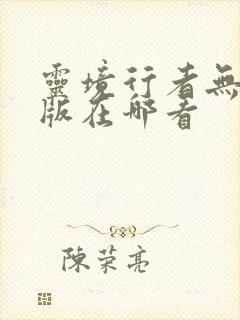 靈境行者無
版在哪看
陳榮亮